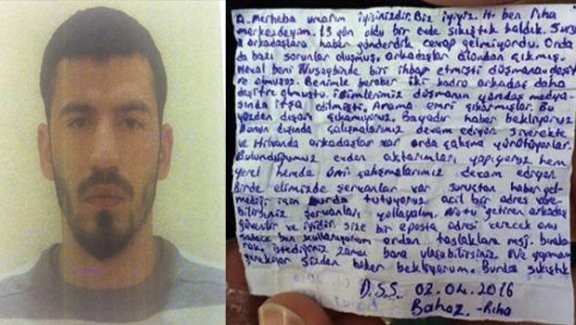 A. Merheba umarım iyisinizdir. Biz iyiyiz. H. ben Riha
merkezdeyam. 13 gün oldu bir evde sıkıştık kaldık. Suruç
arkadaşlara haber gönderdik cevap gelmiyordu. Orda
da bazı sorunlar oluşmuş. arkadaşlar alandan çıkmış.
Heval beni Nusaybinde biri ihbar etmişti düşmana deşif
re olmuşuz. Benimle beraber iki kadro arkadaş daha
deşifre olmuştu. isimlerimiz düşmanın yandaş medya
sında ifşa edilmişti. Arama emri çıkarmışlar. Bu
yüzden dışarı çıkamıyoruz. Bayadır haber bekliyoruz
Bunun dışında çalışmalarımız devam ediyor. Siverekte
ve Hilvanda arkadaşlar var orda çalışma yürütüyorlar.
Bulunduğumuz evden aktarımları yapıyoruz hem
yerel hemde çalışmalarımız devam ediyor
Birde elimizde şervanlar var suruçtan haber gel
mediği için burda tutuyoruz acil bir adres vere
bilirseniz şervanları yollayalım. Notu getiren arkadaş
güvenilir ve iyidir. size bir eposta adresi verecek onu
sadece ben kullanıyorum ordan taslaklara msj. bıraka
istediğiniz zaman bana ulaşabilirsiniz. Ne yapmam
gerekiyor sizden haber bekliyorum. Burda sıkıştık
D.S.S. 02.04.2016
Bahoz -Riha